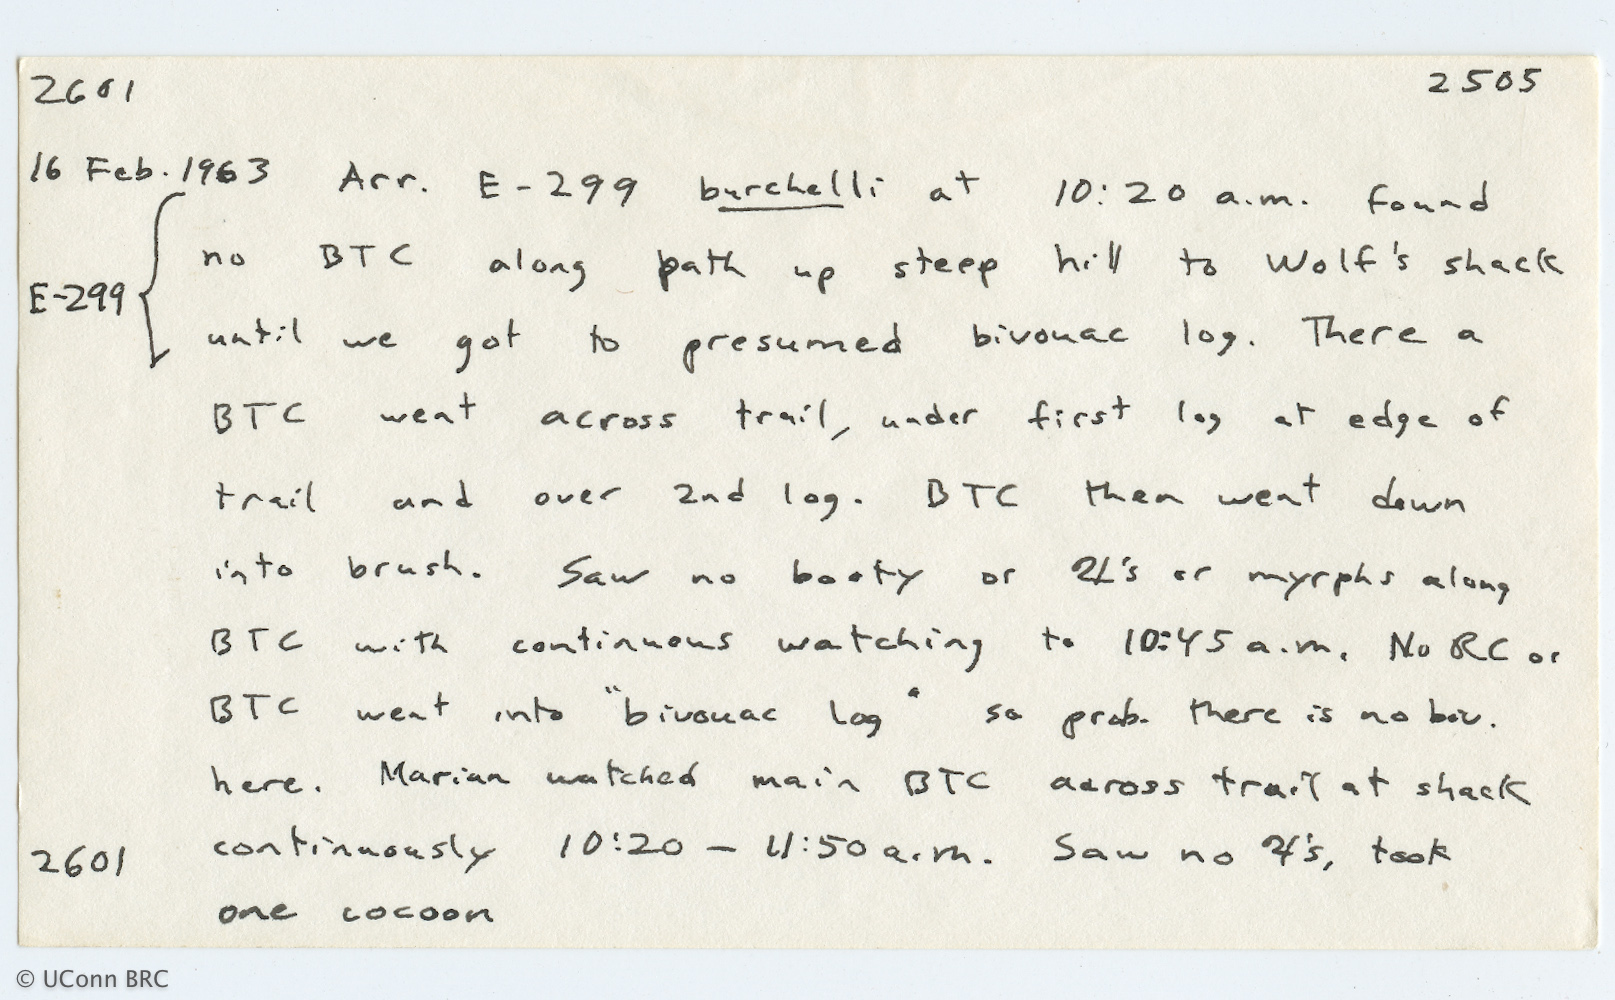 2601 2505
16 Feb. 1963 Arr. E-299 burchelli at 10:20 a.m. Found
no BTC along path up steep hill to Wolf's shack
E-299
until we got to presumed bivouac log. There a
BTC went across trail, under first log at edge of
trail and over 2nd log. BTC then went down
into brush. Saw no booty or 's or myrphs along
BTC with continuous watching to 10:45 a.m. No RC or
BTC went into "bivouac log" so prob. there is no biv.
here. Marian watched main BTC across trail at shack
2601 continuously 10:20 - 11:50 a.m. Saw no 's, took
one cocoon
© UConn BRC